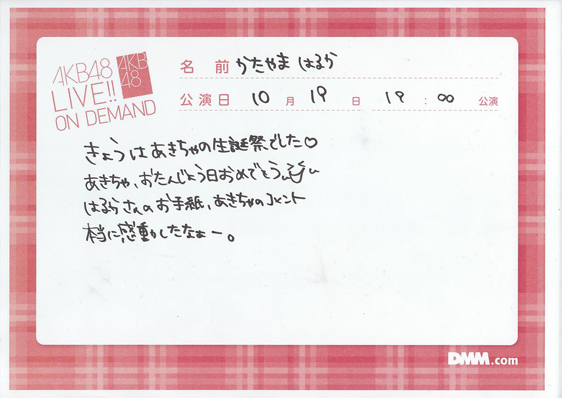 AKB48
LIVE!!
ON DEMAND
AKB
48
名 前 かたやま はるか
公演日 10 月 19 日 19 : 00 公演
きょうはあきちゃの生誕祭でした♡
あきちゃ、おたんじょう日おめでとう
はるらさんのお手紙、あきちゃのコメント
本当に感動したなぁー。
DMM.com